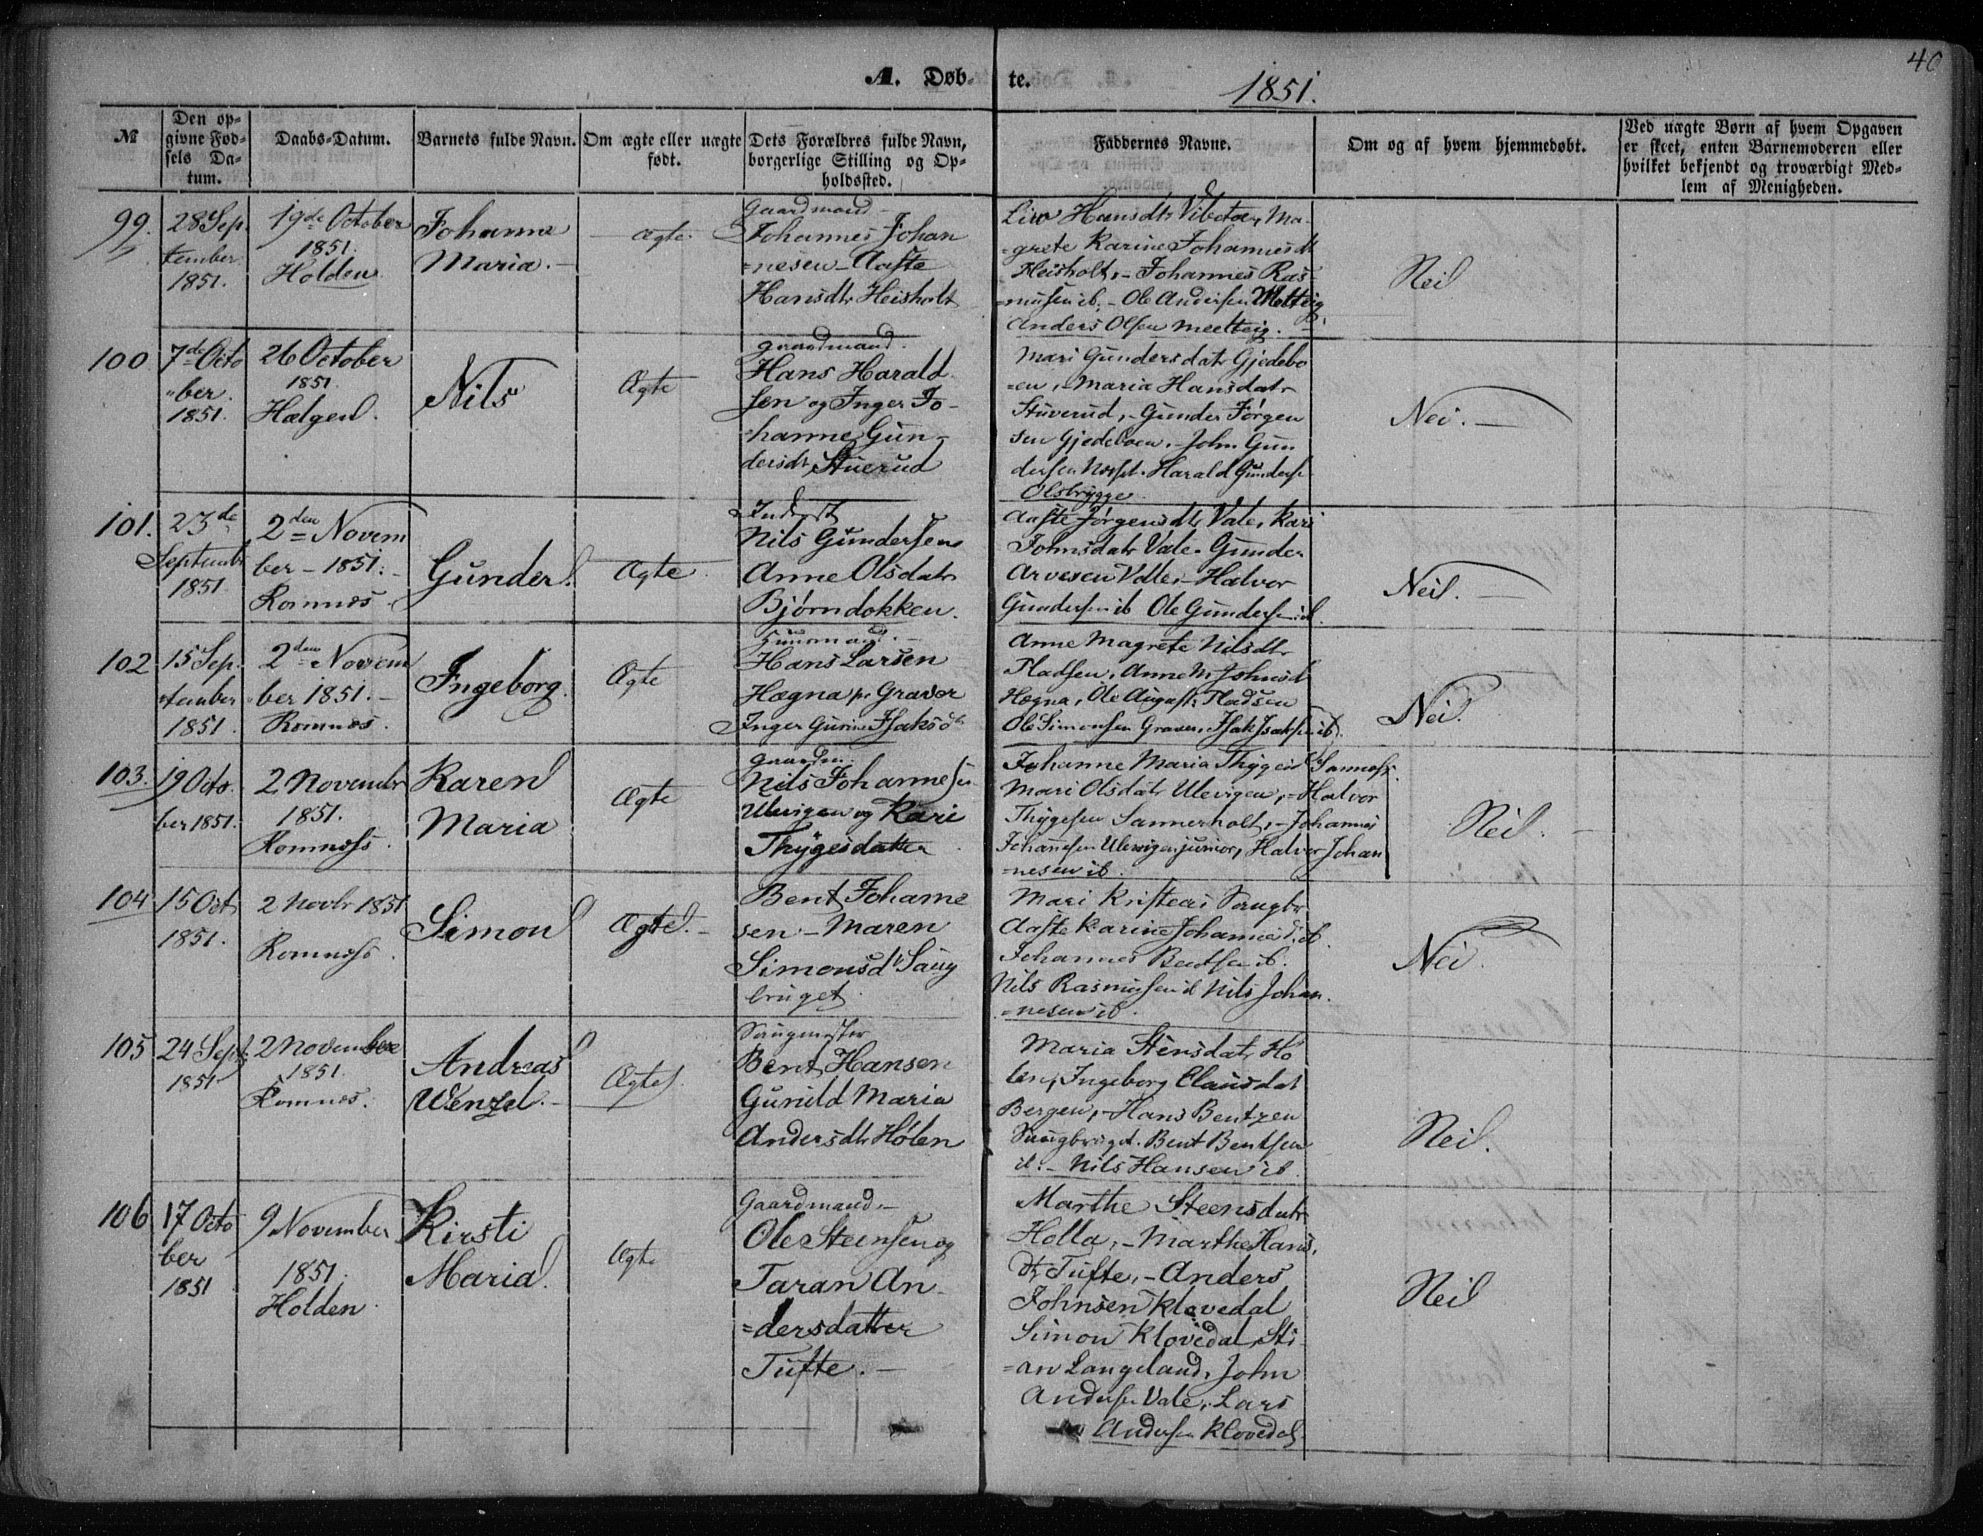 A. Døb-
te.
1851.
40
№
Den op-
givne Fød-
sels Da-
tum.
Daabs-Datum.
Barnets fulde Navn.
Om ægte eller uægte
født.
Dets Forældres fulde Navn,
borgerlige Stilling og Op-
holdssted.
Faddernes Navne.
Om og af hvem hjemmedøbt.
Ved uægte Børn af hvem Opgaven
er skeet, enten Barnemoderen eller
hvilket bekjendt og troværdigt Med-
lem af Menigheden.
99.
28 Sep
tember
1851.
19de October
1851.
Holden
Johanne
Maria.
ægte.
Gaardmand
Johannes Johan
=nesen - Aaste
Hansdtr Heisholt
Liv Hansdtr Vibeto, Ma-
grete Karine Johannesdt
Heisholt, - Johannes Ras
musen ib. - Ole Andersen
Anders Olsen
Nei
100
7de Octo
"ber.
1851.
26 October
1851.
Hælgen.
Nils
Ægte
gaardmand.
Hans Harald
sen og Inger Jo-
hanne Gun-
dersdtr Stuerud
Mari Gundersdatr Gjedebo
=en, Maria Hansdatr
Stuverud, - Gunder Jørgen
sen Gjedeboen. - John Gun
dersen Harald Gunders
Olsbrygge
Nei. -
101.
23de
Septembr
1851.
2den Novem
ber - 1851.
Romnes
Gunder.
Ægte
Inderst
Nils Gundersen
Anne Olsdatr
Bjørndokken.
Aaste Jørgensdtr Vale, Kari
Johnsdatr Vale. Gunder
Arvesen Valle, - Halvor
Gundersen ib Ole Gundersen ib.
Nei. -
102
15 Sep.
tember
1851.
2den Novem
"ber 1851. -
Romnes.
Ingeborg.
Ægte
Huusmand. -
Hans Larsen
Hægna pr Graver
Inger Gurine Isaksdtr
Anne Magrete Nilsdtr
Pladsen, Anne M. Johnsd
Hægna, Ole August Pladsen
Ole Simonsen Graver, Isak Isaksen ib.
Nei.
103.
19 Octo.
ber 1851.
2 Novembr
1851.
Romness
Karen
Maria
Ægte
Gaardm.
Nils Johannesen
Ulevigen og Kari
Thygesdatter
Johanne Maria Thygesd
Mari Olsdatr Ulevigen, - Halvor
Thygesen Sannerholt, - Johannes
Johansen Ulevigen junior, Halvor Johan
=nesen ib.
Nei. -
104
15 Oct
1851.
2 Novbr 1851
Romness.
Simon
Ægte. -
Bent Johanne
sen - Maren
Simonsdtr Saug
bruget.
Mari Saugbr
Aaste Karine Johannesd. ib.
Johannes Bentsen ib.
Nils Rasmusen ib Nils Johan.
=nesen ib.
Nei.
105
24 Sept.
1851
2 November
1851.
Romnes.
Andreas
Wenzel. -
Ægte.
Saugmester
Bent Hansen
Gunild Maria
Andersdtr Holen
Maria Stensdatr Ho
len, Ingeborg Clausdat
Bergen, - Hans Bentzen
Saugbruget. Bent Bentsen
ib. - Nils Hansen ib.
Nei.
106
17 Octo
ber
1851
9 November
1851.
Holden.
Kirsti
Maria.
Ægte
Gaardmand -
Ole Steensen og
Taran An-
=dersdatter
Tufte. -
Marthe Steensdatr
Holla, - Marthe Hans.
dtr Tufte, - Anders
Johnsen Klovedal
Simon Klovedal, Sti-
=an Langeland, John
Andersen Vale, Lars
Andersen Klovedal.
Nei